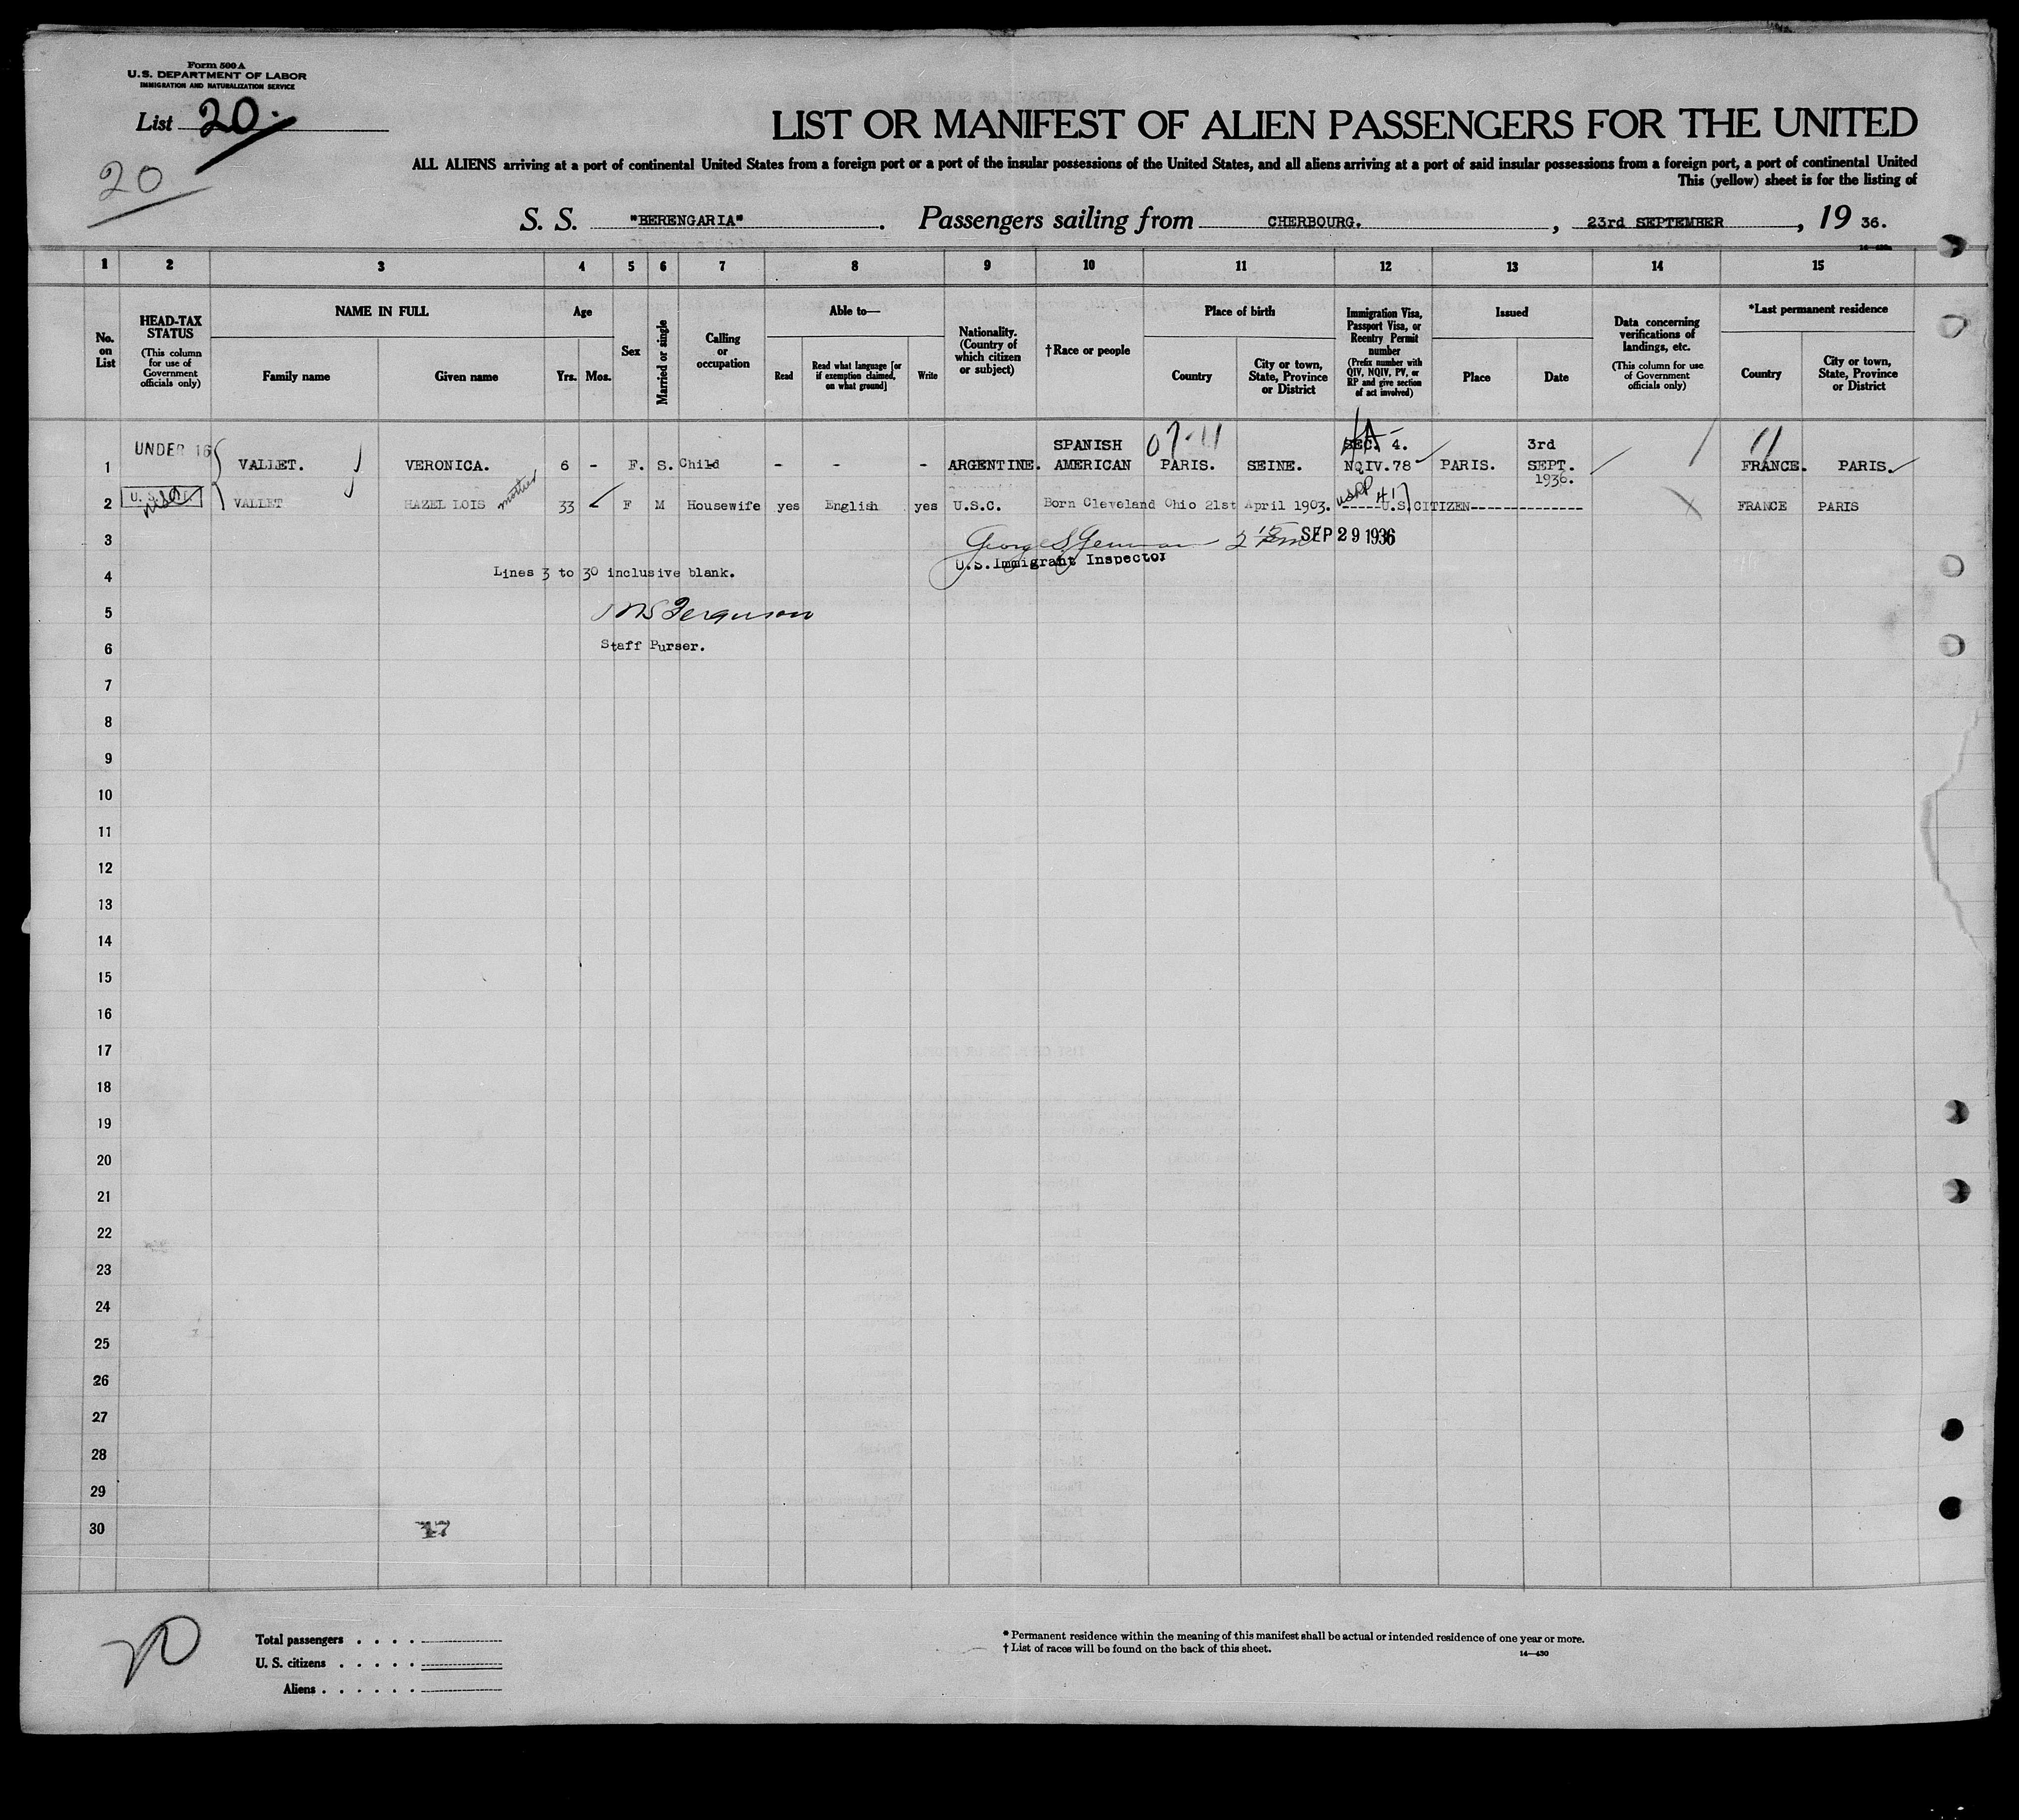 Form 500 A
U. S. DEPARTMENT OF LABOR
IMMIGRATION AND NATURALIZATION SERVICE
List 20.
20
LIST OR MANIFEST OF ALIEN PASSENGERS FOR THE UNITED
ALL ALIENS arriving at a port of continental United States from a foreign port or a port of the insular possessions of the United States, and all aliens arriving at a port of said insular possessions from a foreign port, a port of continental United
This (yellow) sheet is for the listing of
S. S. "BERENGARIA". Passengers sailing from CHERBOURG., 23rd SEPTEMBER, 19 36.
1 2 3 4 5 6 7 8 9 10 11 12 13 14 15
No. on List
HEAD-TAX STATUS (This column for use of Government officials only)
NAME IN FULL
Family name
Given name
Age
Yrs. Mos.
Sex
Married or single
Calling or occupation
Able to—
Read
Read what language [or if exemption claimed, on what ground]
Write
Nationality. (Country of which citizen or subject)
†Race or people
Place of birth
Country
City or town, State, Province or District
Immigration Visa, Passport Visa, or Reentry Permit number (Prefix number with QIV, NQIV, PV, or RP and give section of act involved)
Issued
Place
Date
Data concerning verifications of landings, etc. (This column for use of Government officials only)
*Last permanent residence
Country
City or town, State, Province or District
UNDER 16 SPANISH SEC. 4. 3rd
1 VALLET. VERONICA. 6 - F. S. Child - - - ARGENTINE. AMERICAN PARIS. SEINE. NQIV.78 PARIS. SEPT. FRANCE. PARIS.
1936.
2 VALLET HAZEL LOIS mother 33 F M Housewife yes English yes U.S.C. Born Cleveland Ohio 21st April 1903. -----U.S.CITIZEN-------------- FRANCE PARIS
3 SEP 29 1936
U.S. Immigrant Inspector
4 Lines 3 to 30 inclusive blank.
5 Ferguson
6 Staff Purser.
7
8
9
10
11
12
13
14
15
16
17
18
19
20
21
22
23
24
25
26
27
28
29
30
20
Total passengers . . . .
U. S. citizens . . . . .
Aliens . . . . . .
* Permanent residence within the meaning of this manifest shall be actual or intended residence of one year or more.
† List of races will be found on the back of this sheet.
14—430